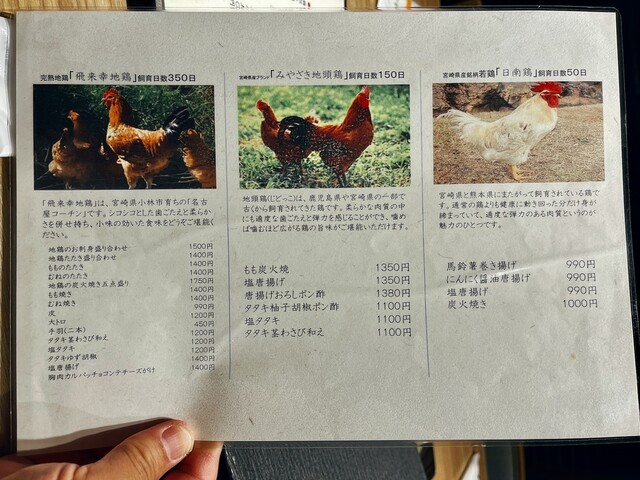 完熟地鶏「飛来幸地鶏」飼育日数350日
「飛来幸地鶏」は、宮崎県小林市育ちの「名古
屋コーチン」です。シコシコとした歯ごたえと柔らか
さを併せ持ち、小味の効いた食味をどうぞご堪能く
ださい。
地鶏のお刺身盛り合わせ 1500円
地鶏たたき盛り合わせ 1400円
もものたたき 1400円
むねのたたき 1400円
地鶏の炭火焼き五点盛り 1750円
もも焼き 1400円
むね焼き 990円
皮 1200円
大トロ 450円
手羽(二本) 1200円
タタキ茎わさび和え 1200円
塩タタキ 1200円
タタキゆず胡椒 1400円
塩唐揚げ 1400円
胸肉カルパッチョコンテチーズがけ
宮崎県産ブランド「みやざき地頭鶏」飼育日数150日
地頭鶏(じどっこ)は、鹿児島県や宮崎県の一部で
古くから飼育されてきた鶏です。柔らかな肉質の中
にも適度な歯ごたえと弾力を感じることができ、噛め
ば噛むほど広がる鶏の旨味がご堪能いただけます。
もも炭火焼 1350円
塩唐揚げ 1350円
唐揚げおろしポン酢 1380円
タタキ柚子胡椒ポン酢 1100円
塩タタキ 1100円
タタキ茎わさび和え 1100円
宮崎県産銘柄若鶏「日南鶏」飼育日数50日
宮崎県と熊本県にまたがって飼育されている鶏で
す。通常の鶏よりも健康に動き回った分だけ身が
締まっていて、適度な弾力のある肉質というのが
魅力のひとつです。
馬鈴薯巻き揚げ 990円
にんにく醤油唐揚げ 990円
塩唐揚げ 990円
炭火焼き 1000円